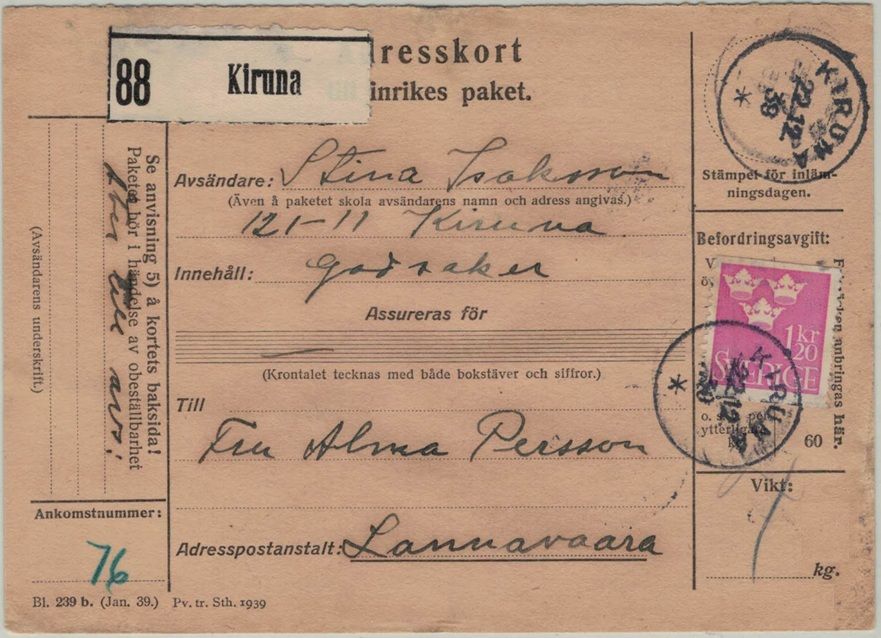 88 Kiruna
dresskort
inrikes paket.
Avsändare: Stina Isaksson
(Även å paketet skola avsändarens namn och adress angivas.)
121-11 Kiruna
Innehåll: Godsaker
Assureras för
(Krontalet tecknas med både bokstäver och siffror.)
Till
Fru Alma Persson
Adresspostanstalt: Lannavaara
Se anvisning 5) å kortets baksida!
Paketet bör i händelse av obeställbarhet
åter till avs!
(Avsändarens underskrift.)
Ankomstnummer:
76
Bl. 239 b. (Jan. 39.) Pv. tr. Sth. 1939
KIRUNA
22.12.
39
Stämpel för inläm-
ningsdagen.
Befordringsavgift:
anbringas här.
1 kr
20
SVERIGE
KIRUNA
22.12.
39
o. s.
ytterlig
60
Vikt:
7
kg.